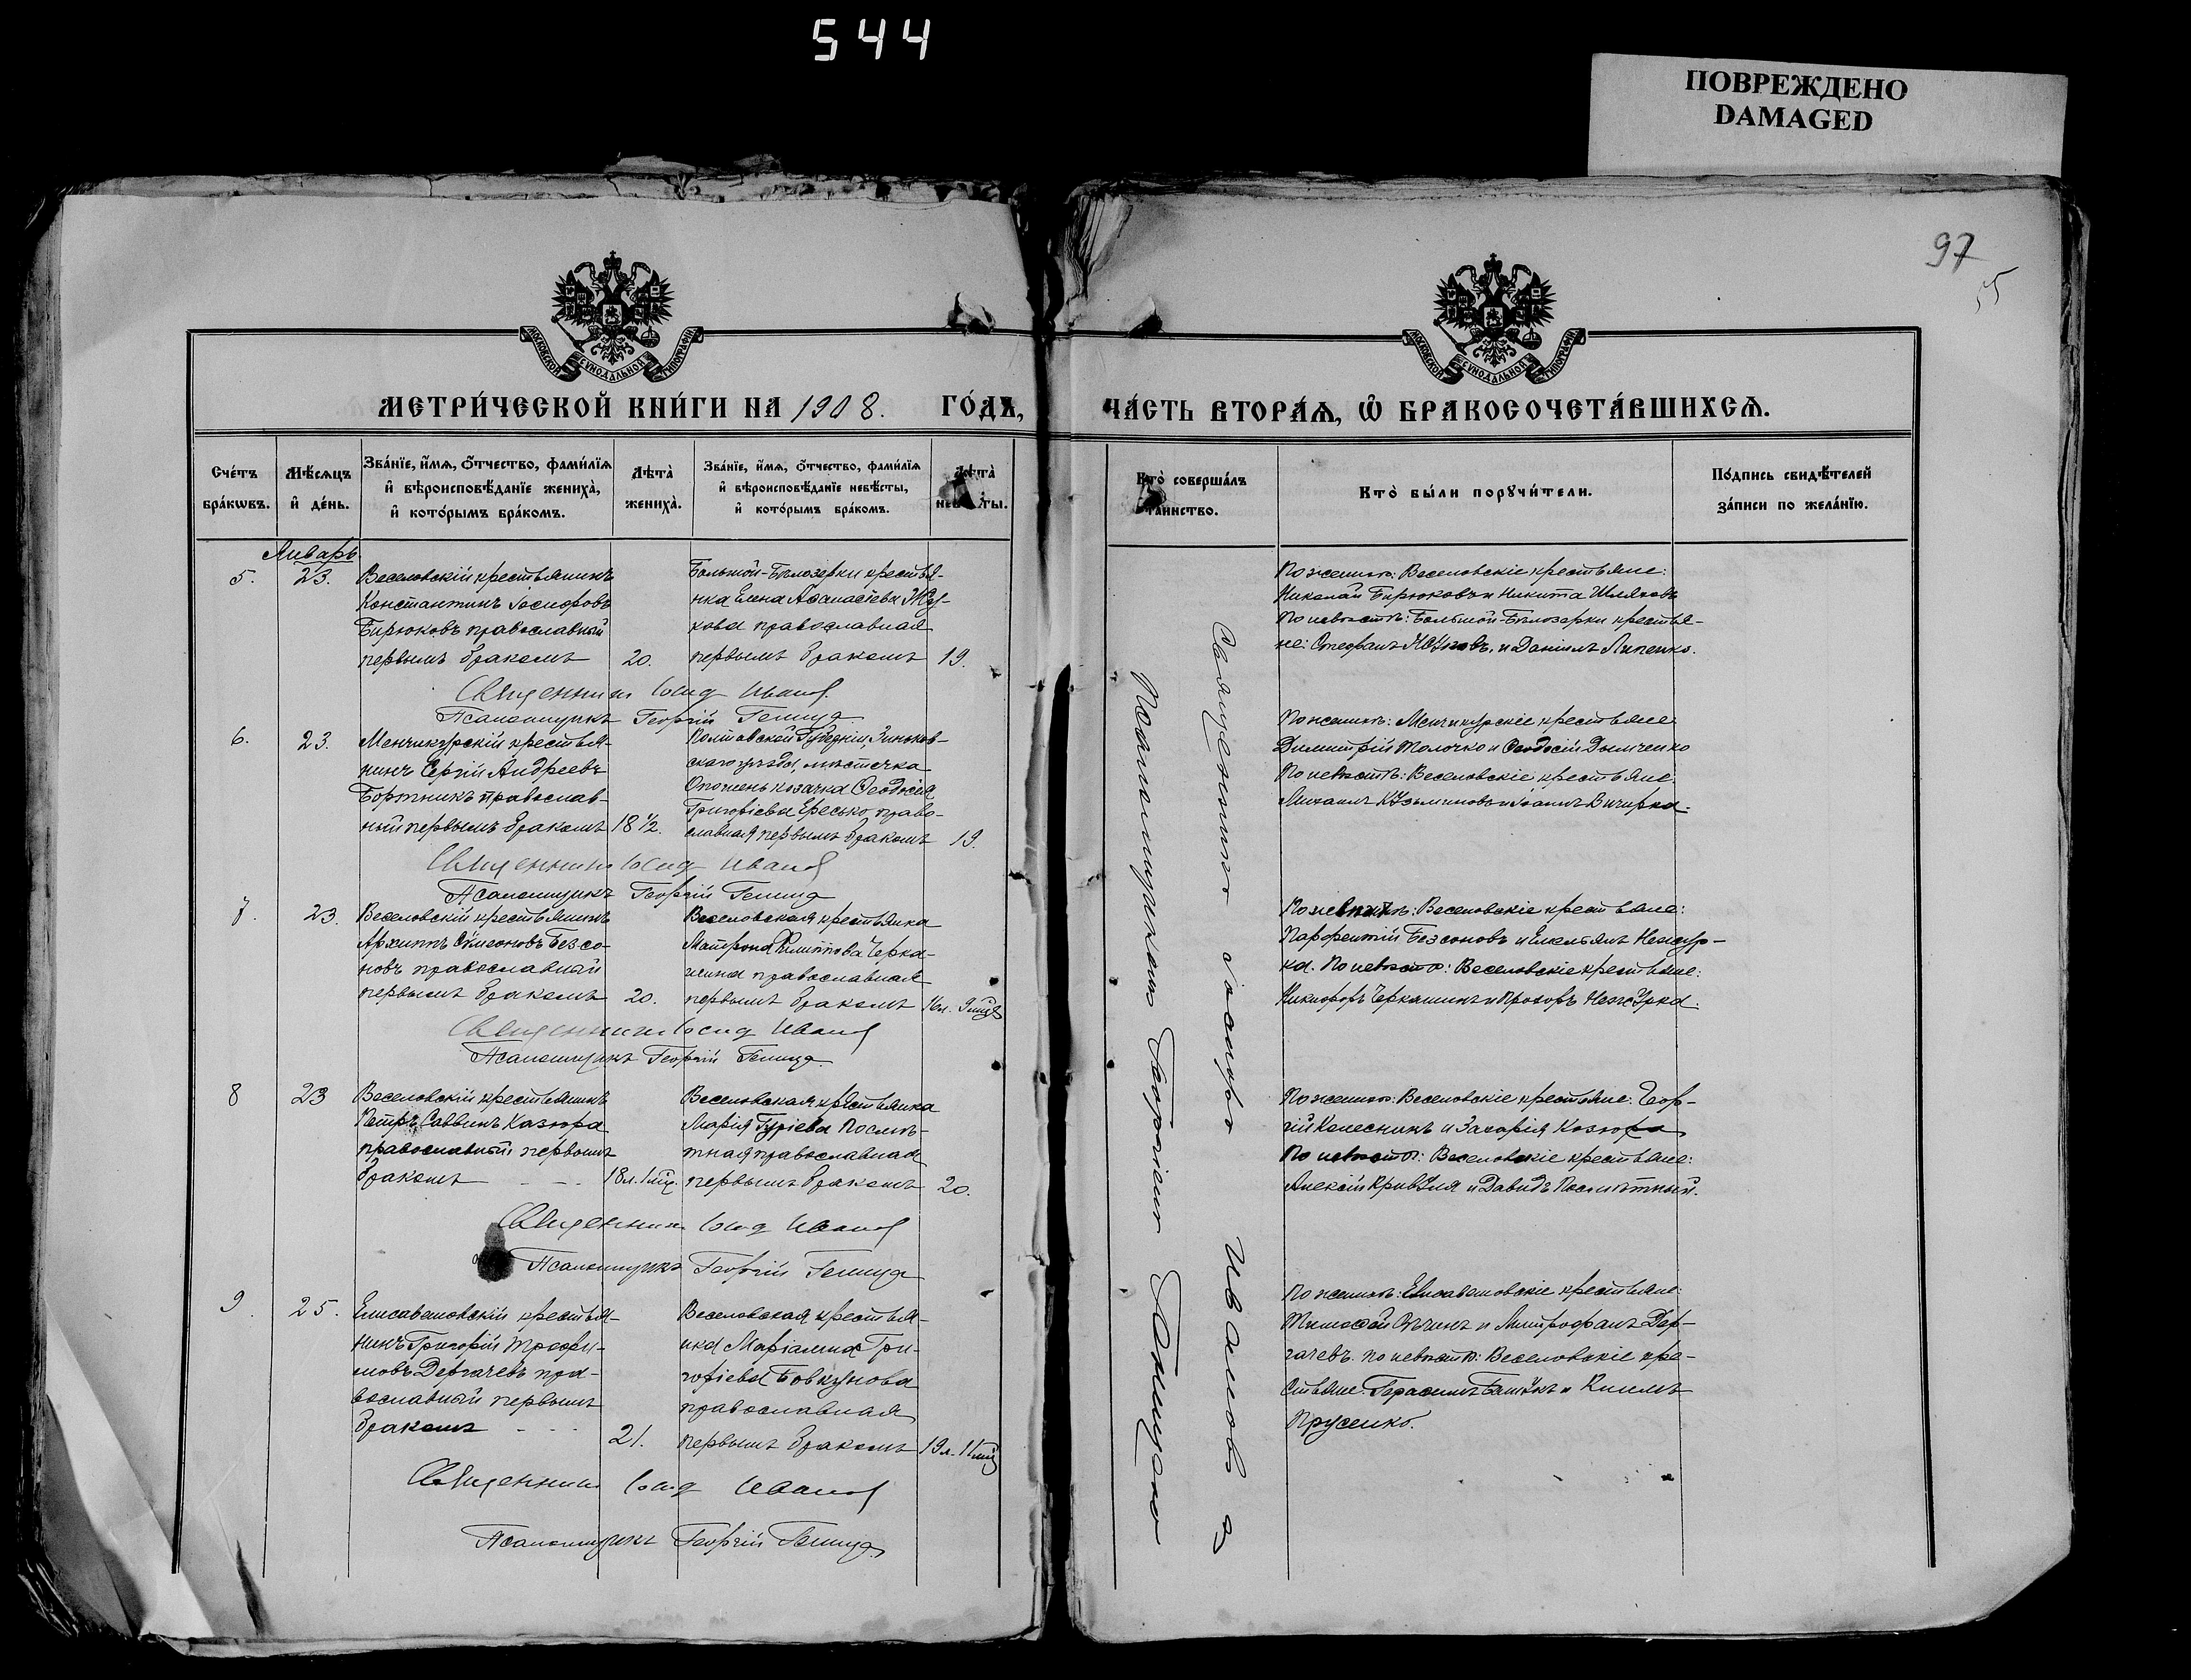 544
ПОВРЕЖДЕНО
DAMAGED
97
55
МОСКОВСКОЙ СѴНОДАЛЬНОЙ ТИПОГРАФІИ
МОСКОВСКОЙ СѴНОДАЛЬНОЙ ТИПОГРАФІИ
МЕТРИ́ЧЕСКОЙ КНИ́ГИ НА 1908. ГО́ДЪ,
ЧА́СТЬ ВТОРА́Ѧ, Ѡ҆ БРАКОСОЧЕТА́ВШИХСѦ.
Сче́тъ бра́кѡвъ.
Мѣ́сѧцъ и҆ де́нь.
Зва́нїе, и҆́мѧ, ѻ҆́тчество, фами́лїѧ и҆ вѣроисповѣ́данїе жениха̀, и҆ кото́рымъ бра́комъ.
Лѣта̀ жениха̀.
Зва́нїе, и҆́мѧ, ѻ҆́тчество, фами́лїѧ и҆ вѣроисповѣ́данїе невѣ́сты, и҆ кото́рымъ бра́комъ.
Лѣта̀ нев ты.
Кто̀ соверша́лъ таинство.
Кто̀ бы́ли порꙋчи́тели.
По́дпись свидѣ́телей за́писи по жела́нїю.
Январь.
5.
23.
Веселовскій крестьянинъ
Константинъ Іосифовъ
Бирюковъ православный
первымъ бракомъ
20.
Большой-Бѣлозерки крестья-
нка Елена Аѳанасіева Жу-
кова православная
первымъ бракомъ
19.
По женихѣ: Веселовскіе крестьяне:
Николай Бирюковъ и Никита Шляховъ
По невѣстѣ: Большой-Бѣлозерки крестья-
не: Стефанъ Жуковъ, и Даніилъ Липенко.
Священникъ Іоанъ Ивановъ
Псаломщикъ Георгій Гепища
6.
23.
Менчикурскій крестья-
нинъ Сергій Андреевъ
Бортникъ православ-
ный первымъ бракомъ
18 1/2.
Полтавской Губерніи, Зиньков-
скаго уѣзда, мѣстечка
Опошень козачка Ѳеодосія
Григоріева Ересько право-
славная первымъ бракомъ
19.
По женихѣ: Менчикурскіе крестьяне
Димитрій Толочко и Ѳеодосій Дымченко
По невѣстѣ: Веселовскіе крестьяне
Михаилъ Кузьминовъ и Іоаннъ Вичирка.
Священникъ Іоанъ Ивановъ
Псаломщикъ Георгій Гепища
7.
23.
Веселовскій крестьянинъ
Архиппъ Симеоновъ Безсо-
новъ православный
первымъ бракомъ
20.
Веселовская крестьянка
Матрона Филиппова Черка-
шина православная
первымъ бракомъ
16л. 9 мцѣ
По женихѣ: Веселовскіе крестьяне:
Парфентій Безсоновъ и Емельянъ Нежур-
ка. По невѣстѣ: Веселовскіе крестьяне:
Никифоръ Черкашинъ и Прохоръ Нежурка.
Священникъ Іоанъ Ивановъ
Псаломщикъ Георгій Гепища.
8
23
Веселовскій крестьянинъ
Петръ Саввинъ Казюра
православный первымъ
бракомъ
18л. 1 мц.
Веселовская крестьянка
Марія Гуріева Посмѣ-
тная православная
первымъ бракомъ
20.
По женихѣ: Веселовскіе крестьяне: Геор-
гій Колесникъ и Захарія Козюра
По невѣстѣ: Веселовскіе крестьяне:
Алексій Кривуля и Давидъ Посмѣтный.
Священникъ Іоанъ Ивановъ
Псаломщикъ Георгій Гепища
9.
25.
Елисаветовскій крестья-
нинъ Григорій Трофи-
мовъ Дергачевъ пра-
вославный первымъ
бракомъ
21.
Веселовская крестья-
нка Маріамна Гри-
горіева Бовкунова
православная
первымъ бракомъ
19л. 11 мцѣ
По женихѣ: Елисаветовскіе крестьяне:
Тимоѳей и Митрофанъ Дер-
гачевъ. По невѣстѣ: Веселовскіе кре-
стьяне: Герасимъ и Климъ
Прусенко.
Священникъ Іоанъ Ивановъ
Псаломщикъ Георгій Гепища
Священникъ Ивановъ съ
Псаломщикомъ Георгіемъ Гепищею